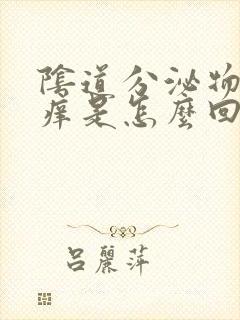 陰道分泌物
痒是怎麽回
呂麗萍